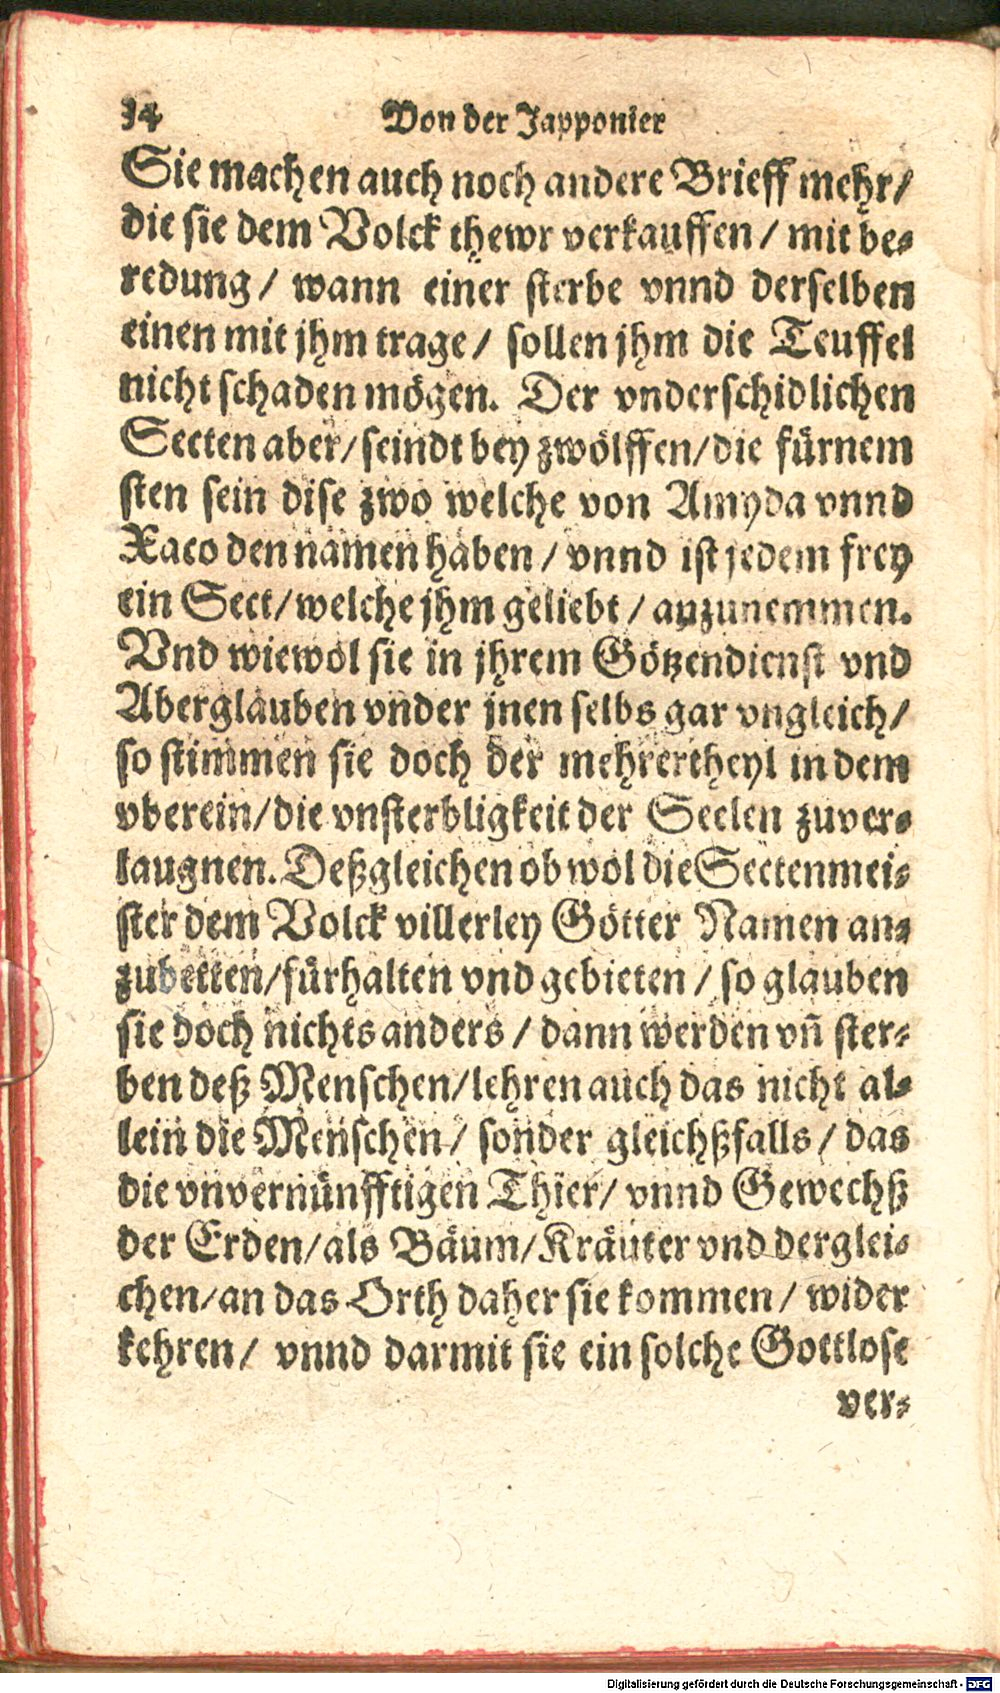 14 Von der Japponier
Sie machen auch noch andere Brieff mehr/
die sie dem Volck thewr verkauffen / mit be-
redung / wann einer sterbe vnnd derselben
einen mit jhm trage / sollen jhm die Teuffel
nicht schaden mögen. Der vnderschidlichen
Secten aber/ seindt bey zwölffen/ die fürnem
sten sein dise zwo welche von Amyda vnnd
Xaco den namen haben / vnnd ist jedem frey
ein Sect/ welche jhm geliebt / anzunemmen.
Vnd wiewol sie in jhrem Götzendienst vnd
Aberglauben vnder jnen selbs gar vngleich/
so stimmen sie doch der mehrertheyl in dem
vberein/ die vnsterbligkeit der Seelen zuver-
laugnen. Deßgleichen ob wol die Sectenmei-
ster dem Volck villerley Götter Namen an-
zubetten/ fürhalten vnd gebieten / so glauben
sie doch nichts anders / dann werden vñ ster-
ben deß Menschen/ lehren auch das nicht al-
lein die Menschen/ sonder gleichßfalls / das
die vnvernünfftigen Thier/ vnnd Gewechß
der Erden/ als Bäum/ Kräuter vnd derglei-
chen/ an das Orth daher sie kommen/ wider
kehren/ vnnd darmit sie ein solche Gottlose
ver-
Digitalisierung gefördert durch die Deutsche Forschungsgemeinschaft - DFG